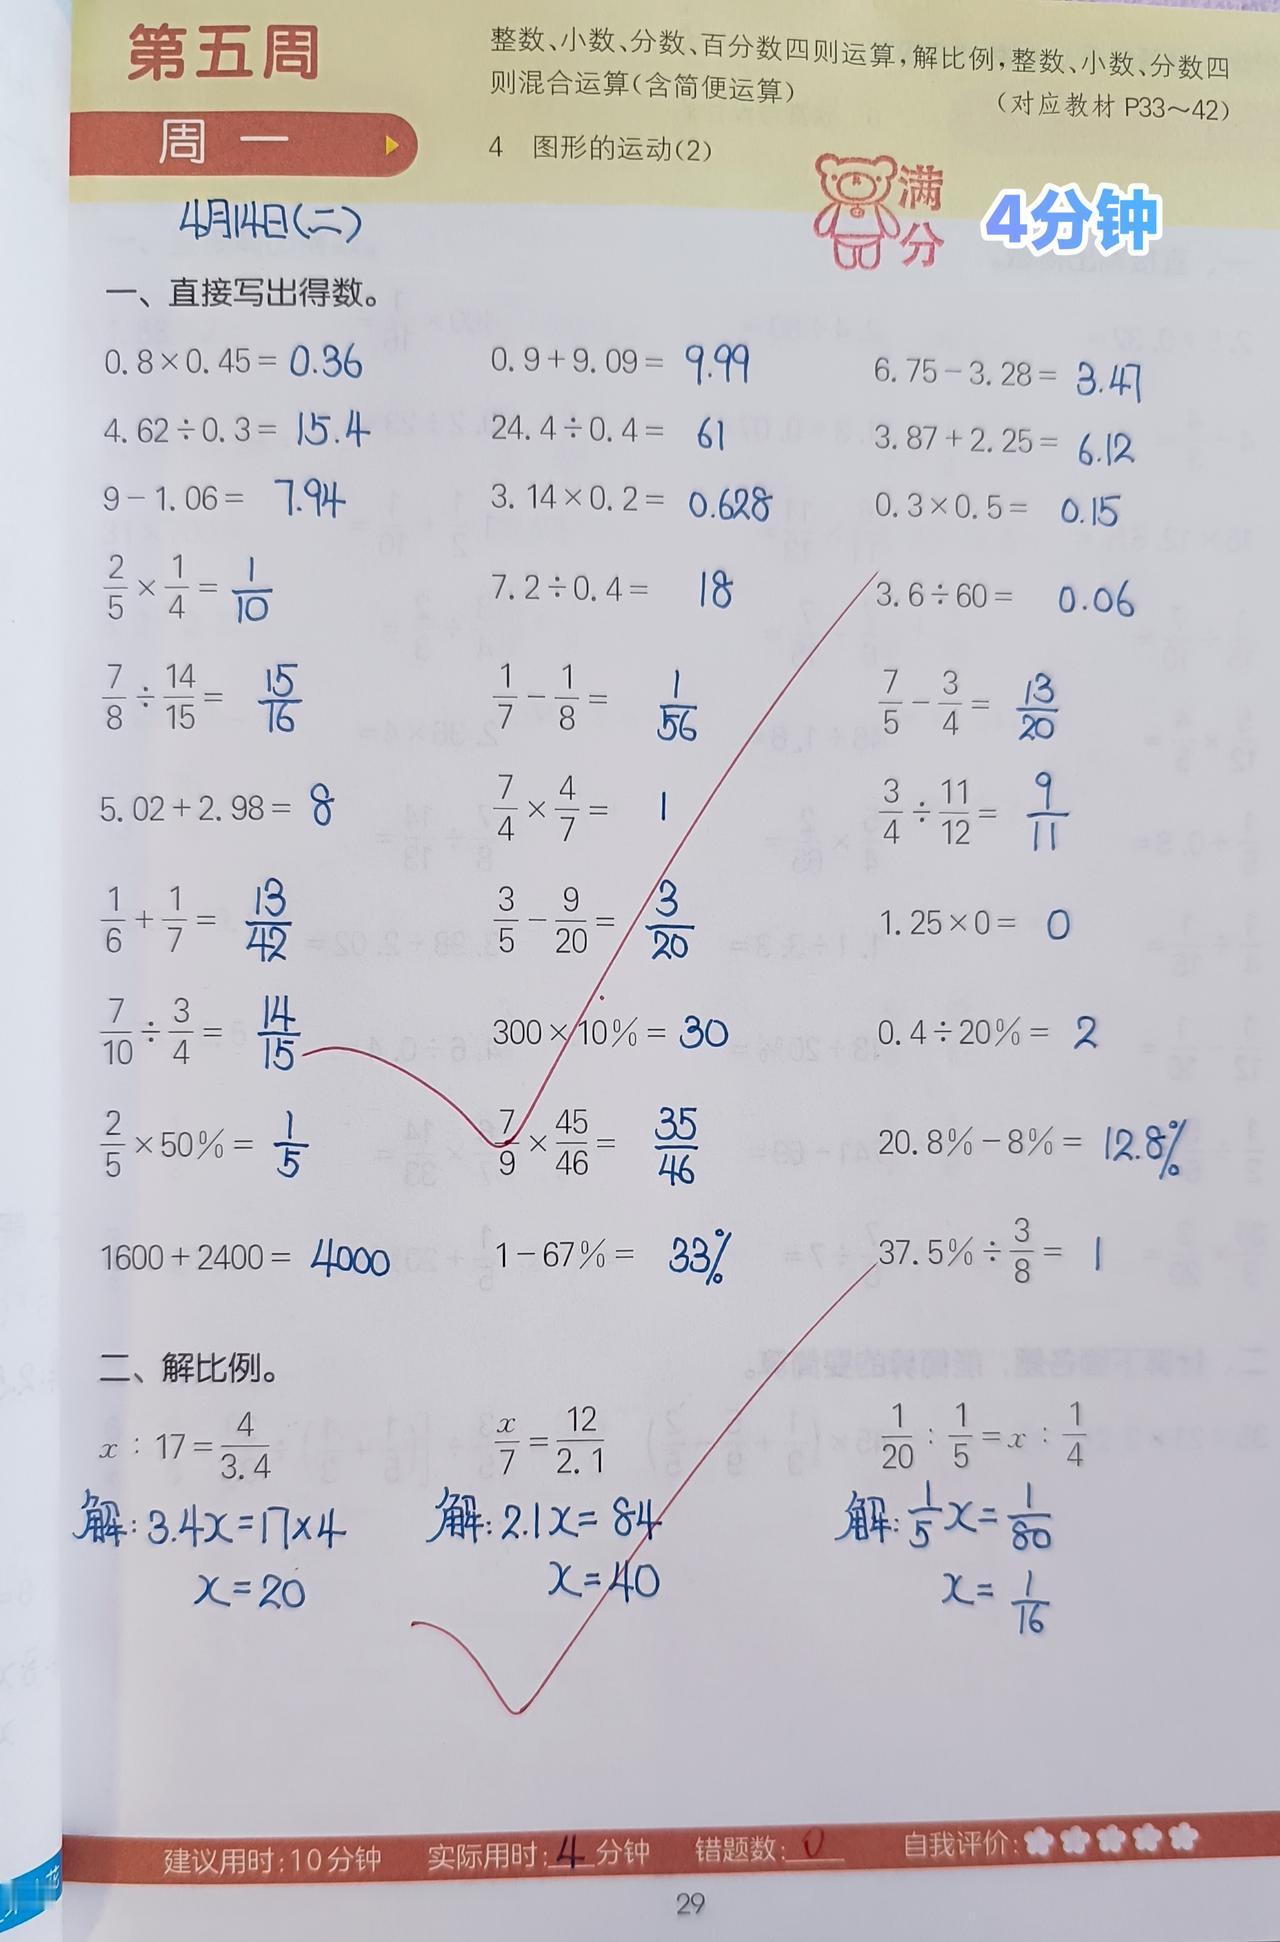 第五周
整数、小数、分数、百分数四则运算,解比例,整数、小数、分数四
则混合运算(含简便运算)
(对应教材 P33~42)
周一
4 图形的运动(2)
满分
4分钟
4月14日(二)
一、直接写出得数。
0.8×0.45= 0.36 0.9+9.09= 9.99 6.75-3.28= 3.47
4.62÷0.3= 15.4 24.4÷0.4= 61 3.87+2.25= 6.12
9-1.06= 7.94 3.14×0.2= 0.628 0.3×0.5= 0.15
2/5×1/4= 1/10 7.2÷0.4= 18 3.6÷60= 0.06
7/8÷14/15= 15/16 1/7-1/8= 1/56 7/5-3/4= 13/20
5.02+2.98= 8 7/4×4/7= 1 3/4÷11/12= 9/11
1/6+1/7= 13/42 3/5-9/20= 3/20 1.25×0= 0
7/10÷3/4= 14/15 300×10%= 30 0.4÷20%= 2
2/5×50%= 1/5 7/9×45/46= 35/46 20.8%-8%= 12.8%
1600+2400= 4000 1-67%= 33% 37.5%÷3/8= 1
二、解比例。
x:17=4/3.4 x/7=12/2.1 1/20:1/5=x:1/4
解:3.4x=17×4 解:2.1x=84 解:1/5x=1/80
x=20 x=40 x=1/16
建议用时:10分钟 实际用时:4分钟 错题数:0 自我评价:
29